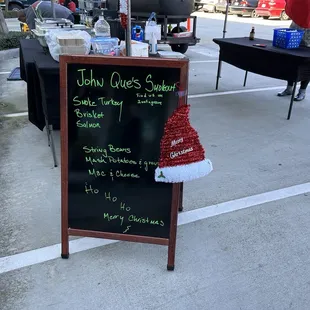 John Que's Smokout
find us on
Smoke Turkey
Instagram
Brisket
Salmon
String Beans
Mash Potatoes & gravy
Mac & Cheese
Ho
Ho
Ho
Merry Christmas
Merry
Christmas